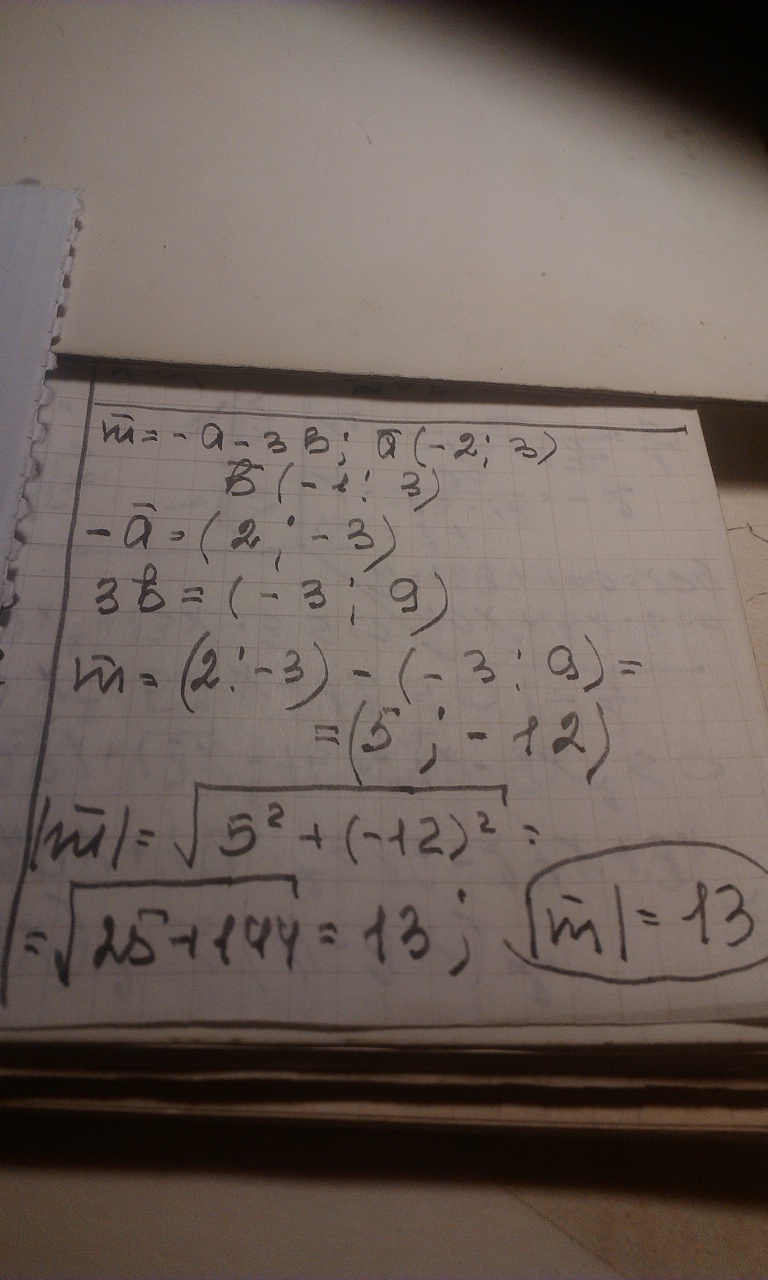 m̄ = - a - 3 в; ā (-2; 3)
в̄ (-1; 3)
- ā = (2; -3)
3 в̄ = (-3; 9)
m̄ = (2; -3) - (-3; 9) =
= (5; -12)
|m̄| = √(5² + (-12)²) =
= √(25 + 144) = 13; |m̄| = 13